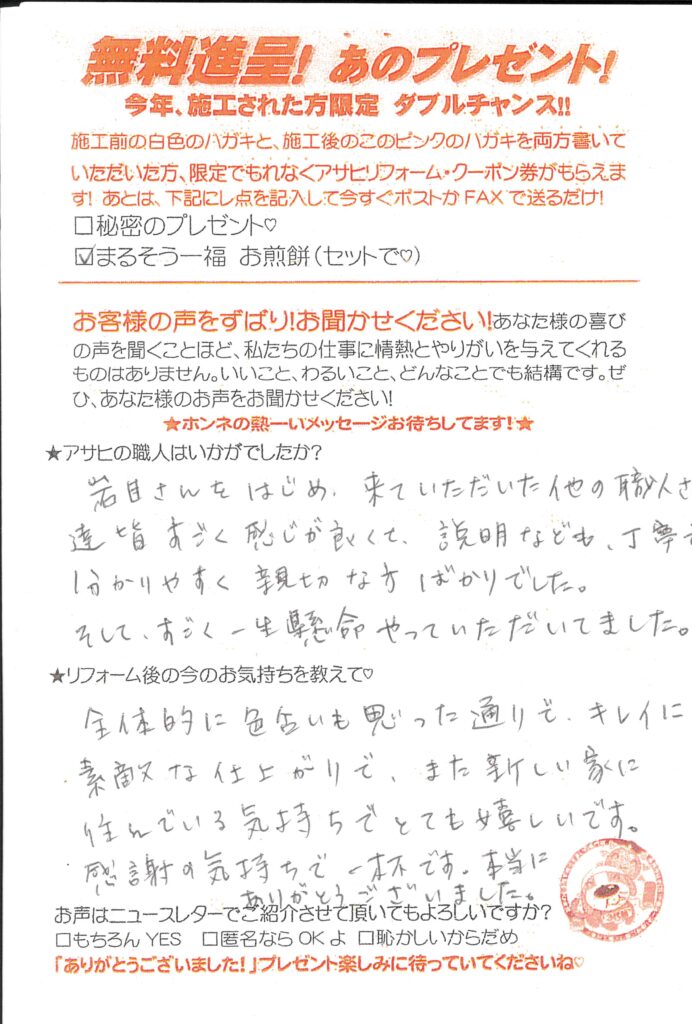 無料進呈! あのプレゼント!
今年、施工された方限定 ダブルチャンス!!
施工前の白色のハガキと、施工後のこのピンクのハガキを両方書いて
いただいた方、限定でもれなくアサヒリフォーム・クーポン券がもらえま
す! あとは、下記にレ点を記入して今すぐポストかFAXで送るだけ!
□秘密のプレゼント♡
☑まるそう一福 お煎餅(セットで♡)
お客様の声をずばり!お聞かせください!あなた様の喜び
の声を聞くことほど、私たちの仕事に情熱とやりがいを与えてくれる
ものはありません。いいこと、わるいこと、どんなことでも結構です。ぜ
ひ、あなた様のお声をお聞かせください!
★ホンネの熱ーいメッセージお待ちしてます!★
★アサヒの職人はいかがでしたか?
岩目さんをはじめ、来ていただいた他の職人さ
達皆すごく感じが良くて、説明なども、丁寧で
分かりやすく親切な方ばかりでした。
そして、すごく一生懸命やっていただいてました。
★リフォーム後の今のお気持ちを教えて♡
全体的に色合いも思った通りで、キレイに
素敵な仕上がりで、また新しい家に
住んでいる気持ちでとても嬉しいです。
感謝の気持ちで一杯です。本当に
ありがとうございました。
お声はニュースレターでご紹介させて頂いてもよろしいですか?
□もちろんYES □匿名ならOKよ □恥かしいからだめ
「ありがとうございました!」プレゼント楽しみに待っていてくださいね♡